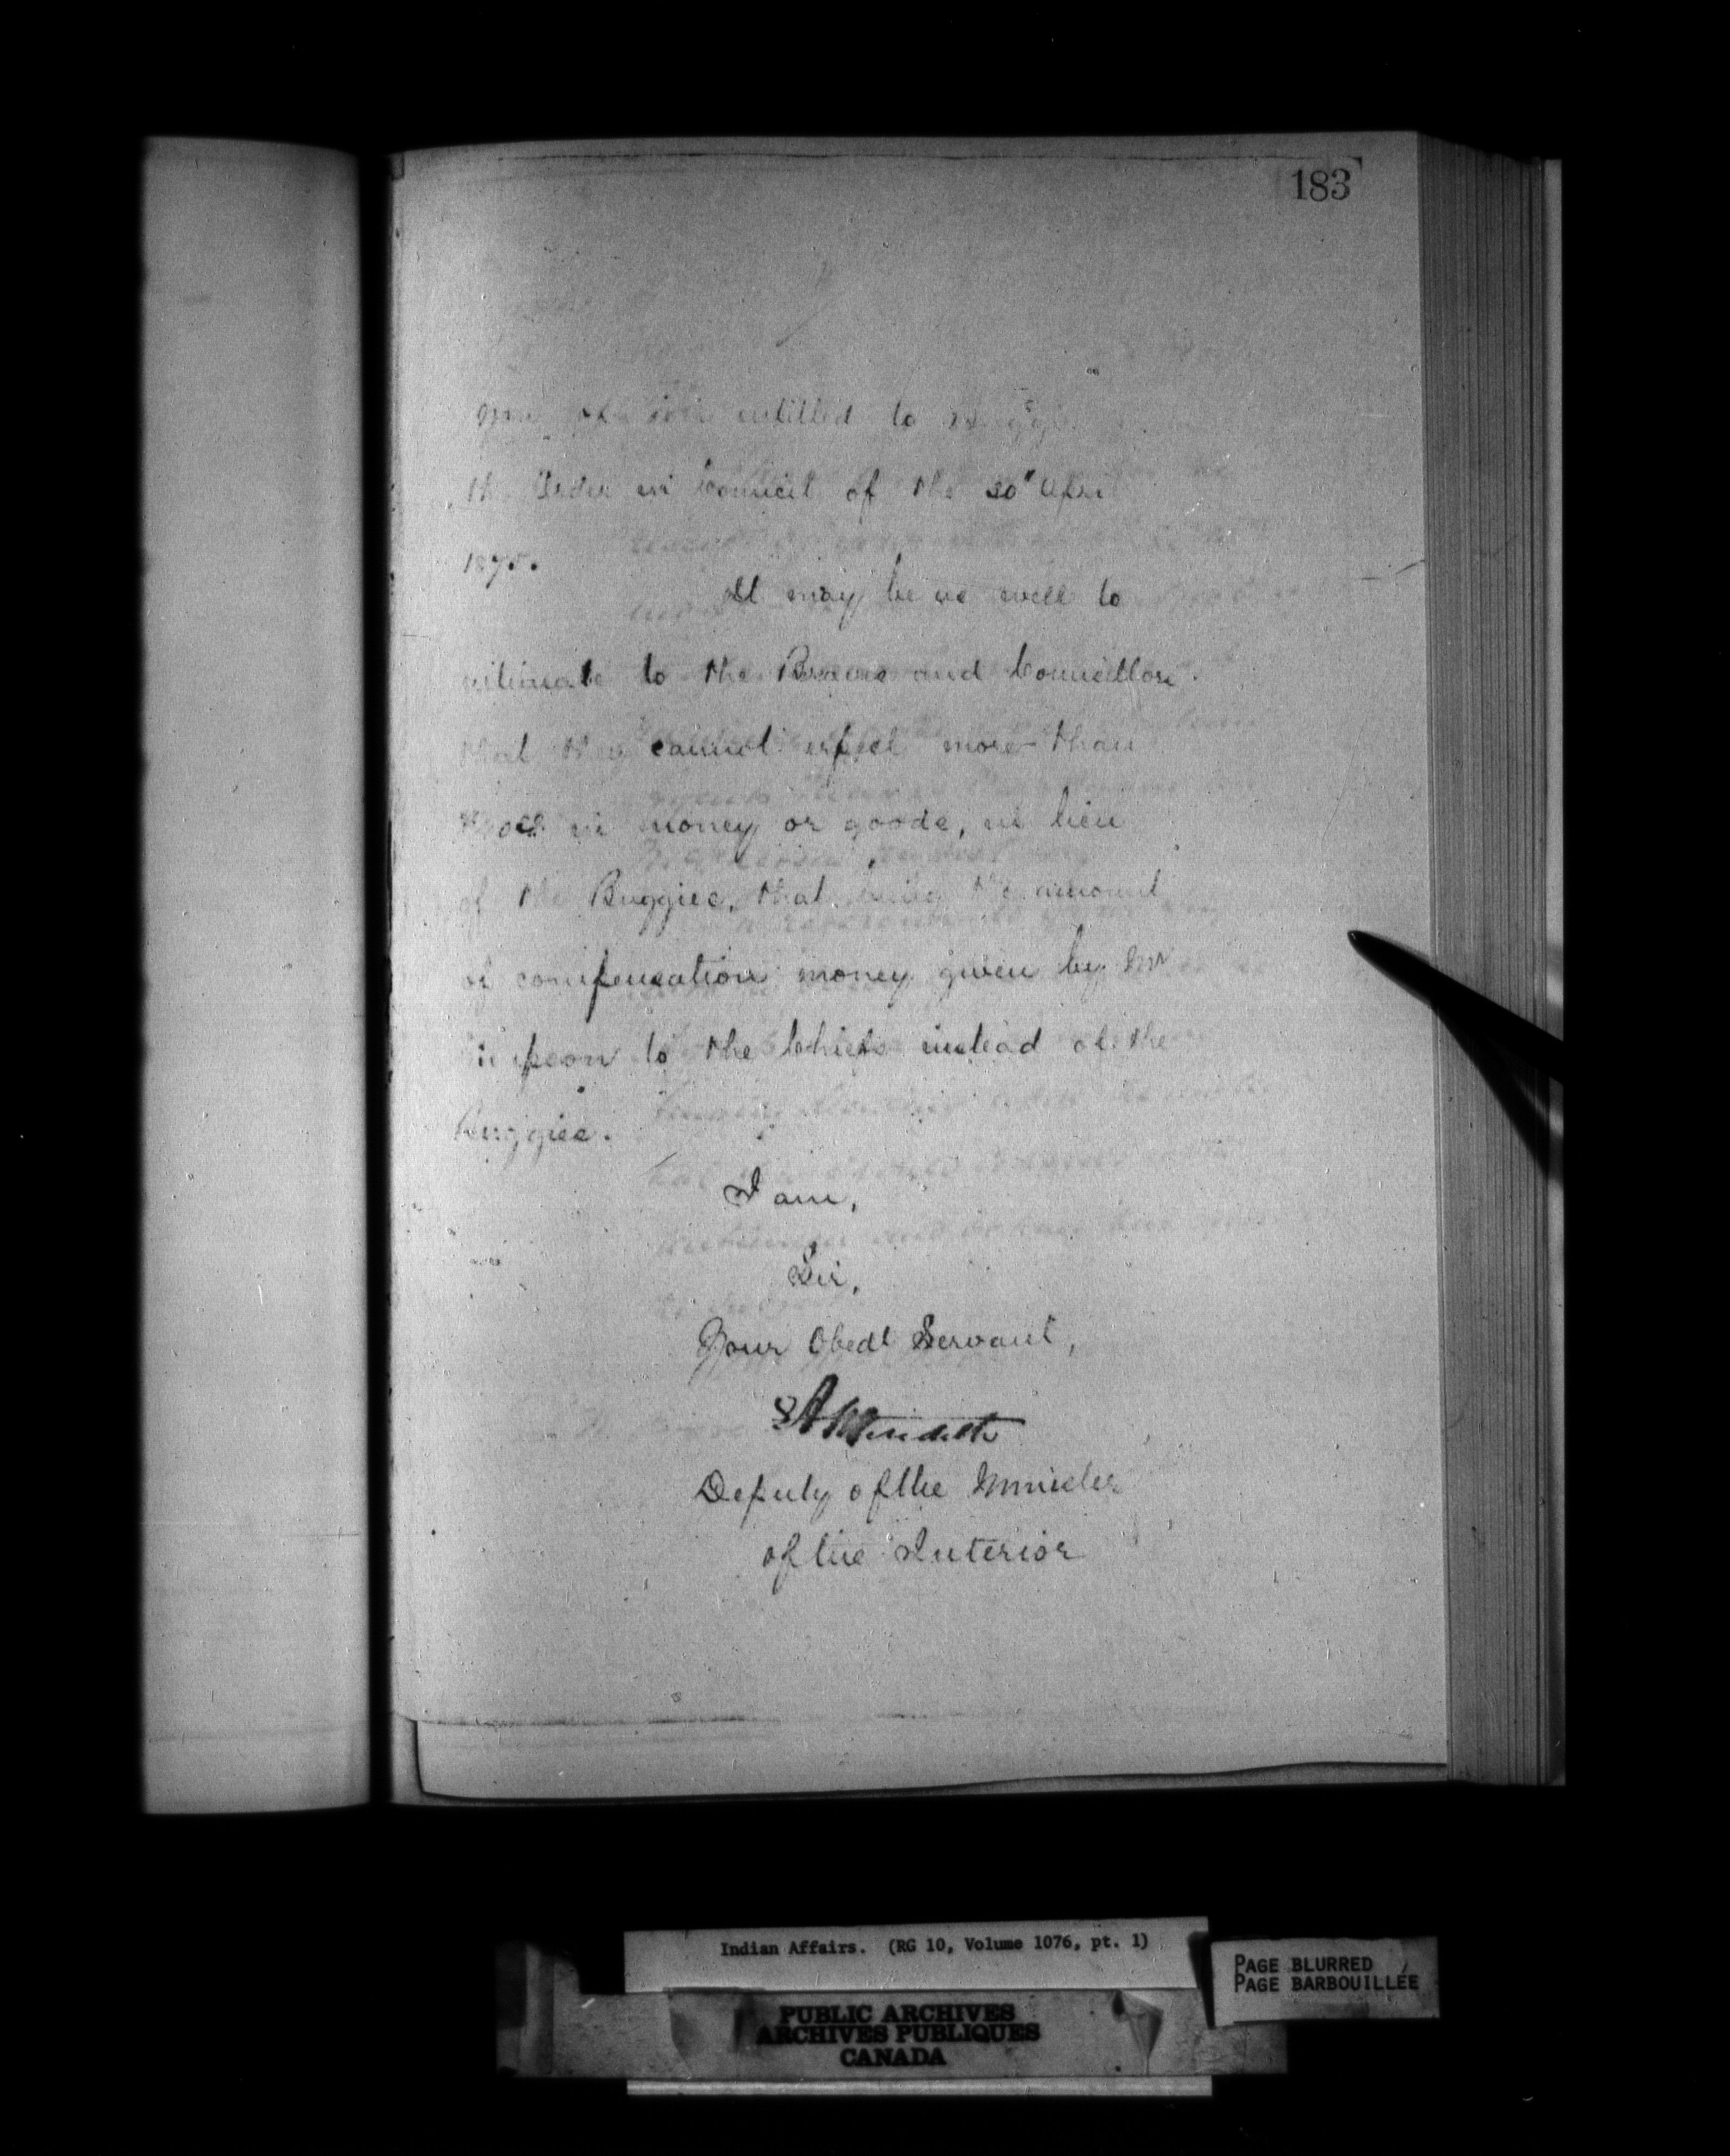 183
entitled to
the Order in Council of the 30" April
1875.
It may be as well to
intimate to the Braves and Councillors
that they cannot expect more than
in money or goods, in lieu
of the Buggies, that being the amount
of compensation money given by Mr
to the Chiefs instead of the
Buggies.
I am,
Sir,
Your Obedt Servant,
EAMeredith
Deputy of the Minister
of the Interior
Indian Affairs. (RG 10, Volume 1076, pt. 1)
PAGE BLURRED
PAGE BARBOUILLÉE
PUBLIC ARCHIVES
ARCHIVES PUBLIQUES
CANADA